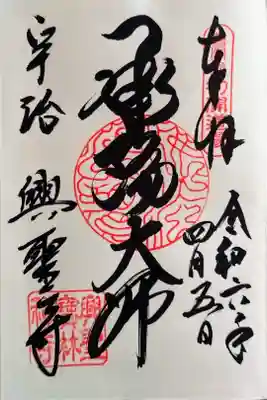 奉拝
令和六年
四月五日
承陽大師
宇治 興聖寺